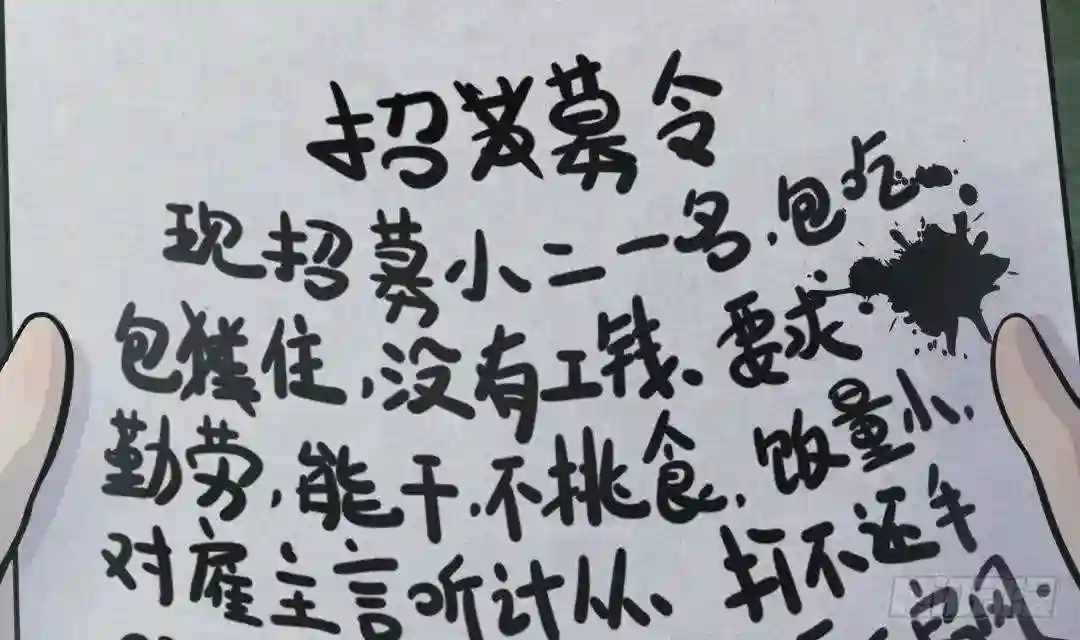 招募令
现招募小二一名,包吃
包住,没有工钱、要求
勤劳,能干、不挑食,饭量小,
对雇主言听计从、打不还手